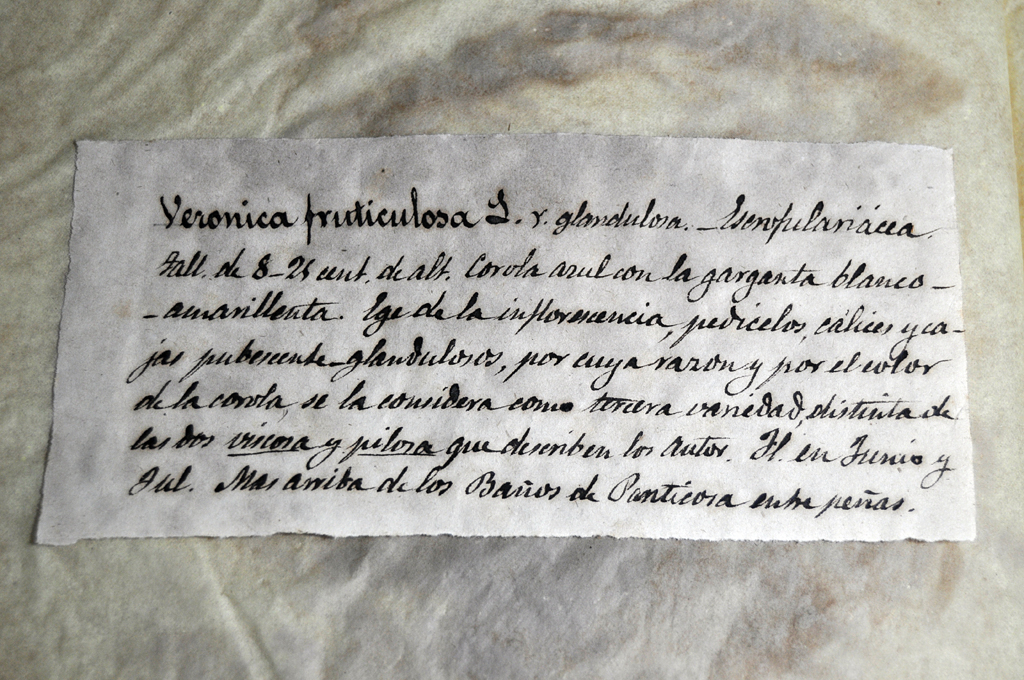 Veronica fruticulosa L. v. glandulosa. - Escrofulariácea.
Tall. de 8-25 cent. de alt. Corola azul con la garganta blanco-
-amarillenta. Ege de la inflorescencia, pedicelos, cálices y ca-
jas pubescente-glandulosos, por cuya razon y por el color
de la corola se la considera como tercera variedad, distinta de
las dos viscosa y pilosa que describen los autor. Fl. en Junio y
Jul. Mas arriba de los Baños de Panticosa entre peñas.